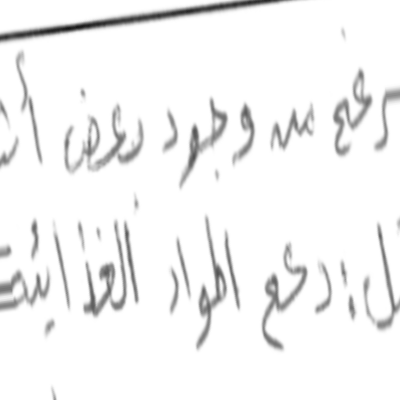 رغم من وجود بعض أ
ل: دعم المواد الغذائية